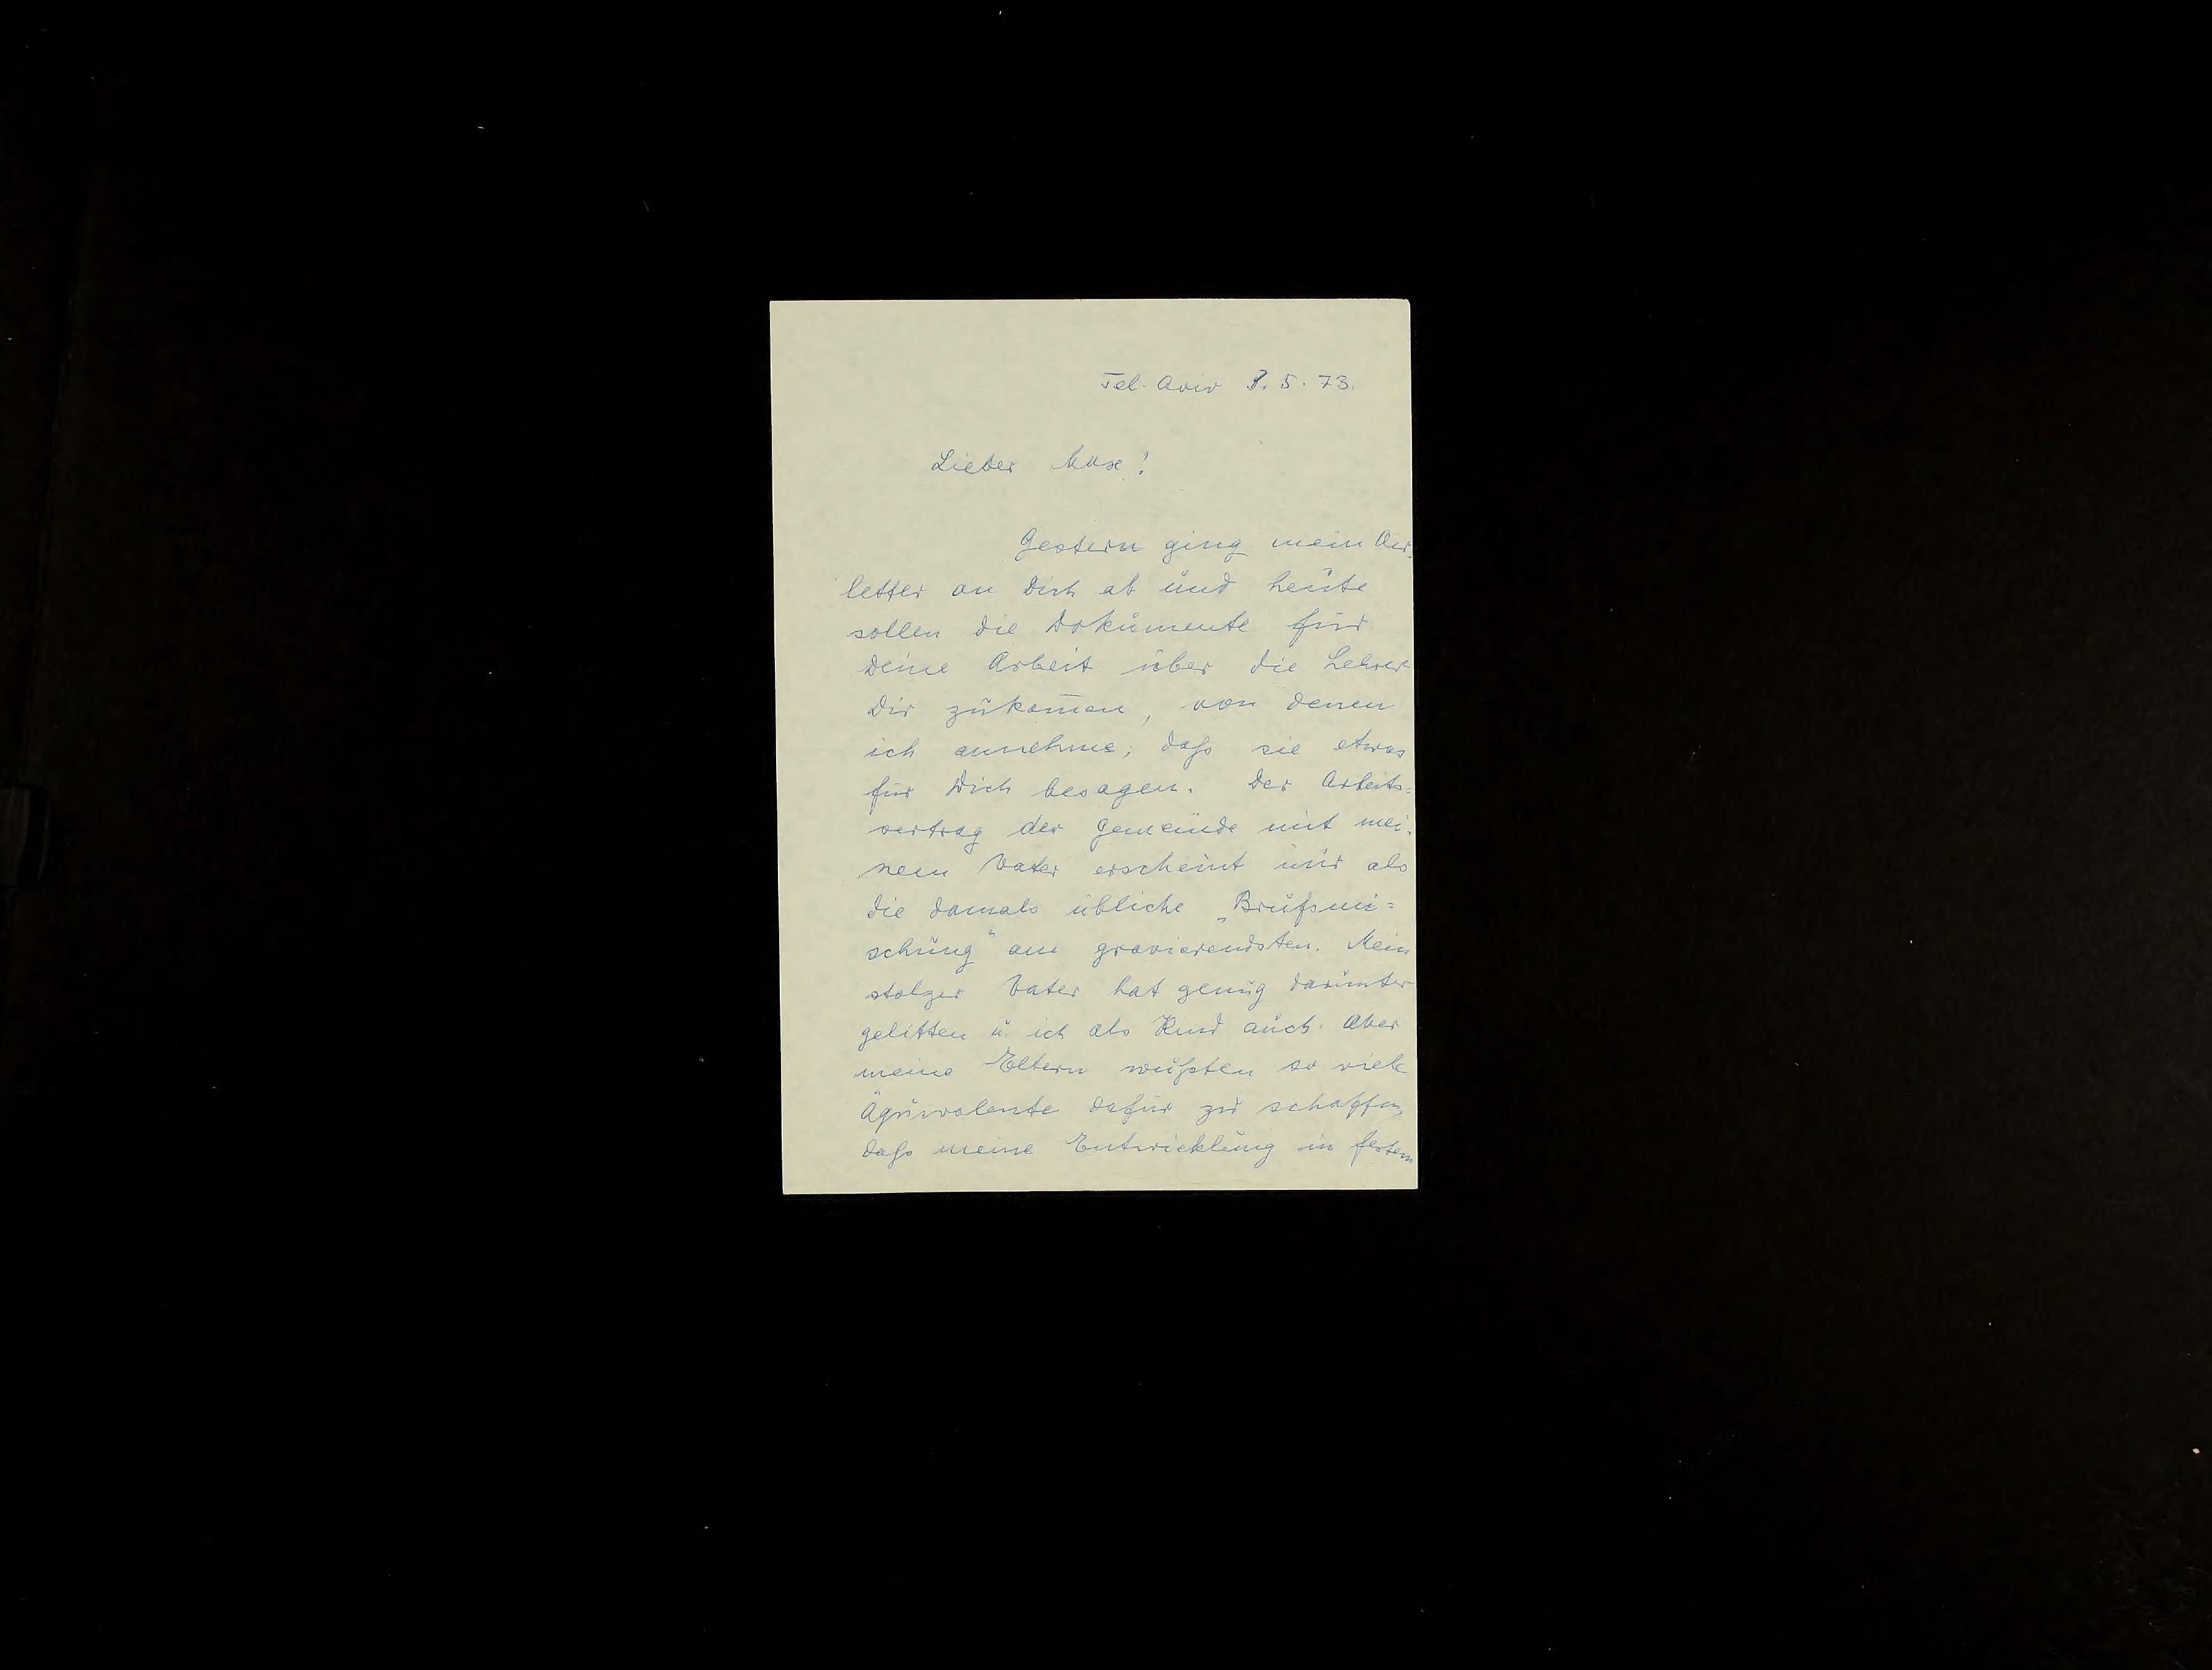 Tel-Aviv 3.5.73.
Lieber Max!
Gestern ging mein Air
letter an Dich ab und heute
sollen die Dokumente für
Deine Arbeit über die Lehrer
Dir zukom̄en, von denen
ich annehme, daß sie etwas
für Dich besagen. Der Arbeits=
vertrag der Gemeinde mit mei-
nem Vater erscheint mir als
die damals übliche
schung" am gravierendsten. Mein
stolzer Vater hat genug darunter
gelitten u. ich als Kind auch. Aber
meine Eltern wußten so viele
Äquivalente dafür zu schaffen,
daß meine Entwicklung in festem